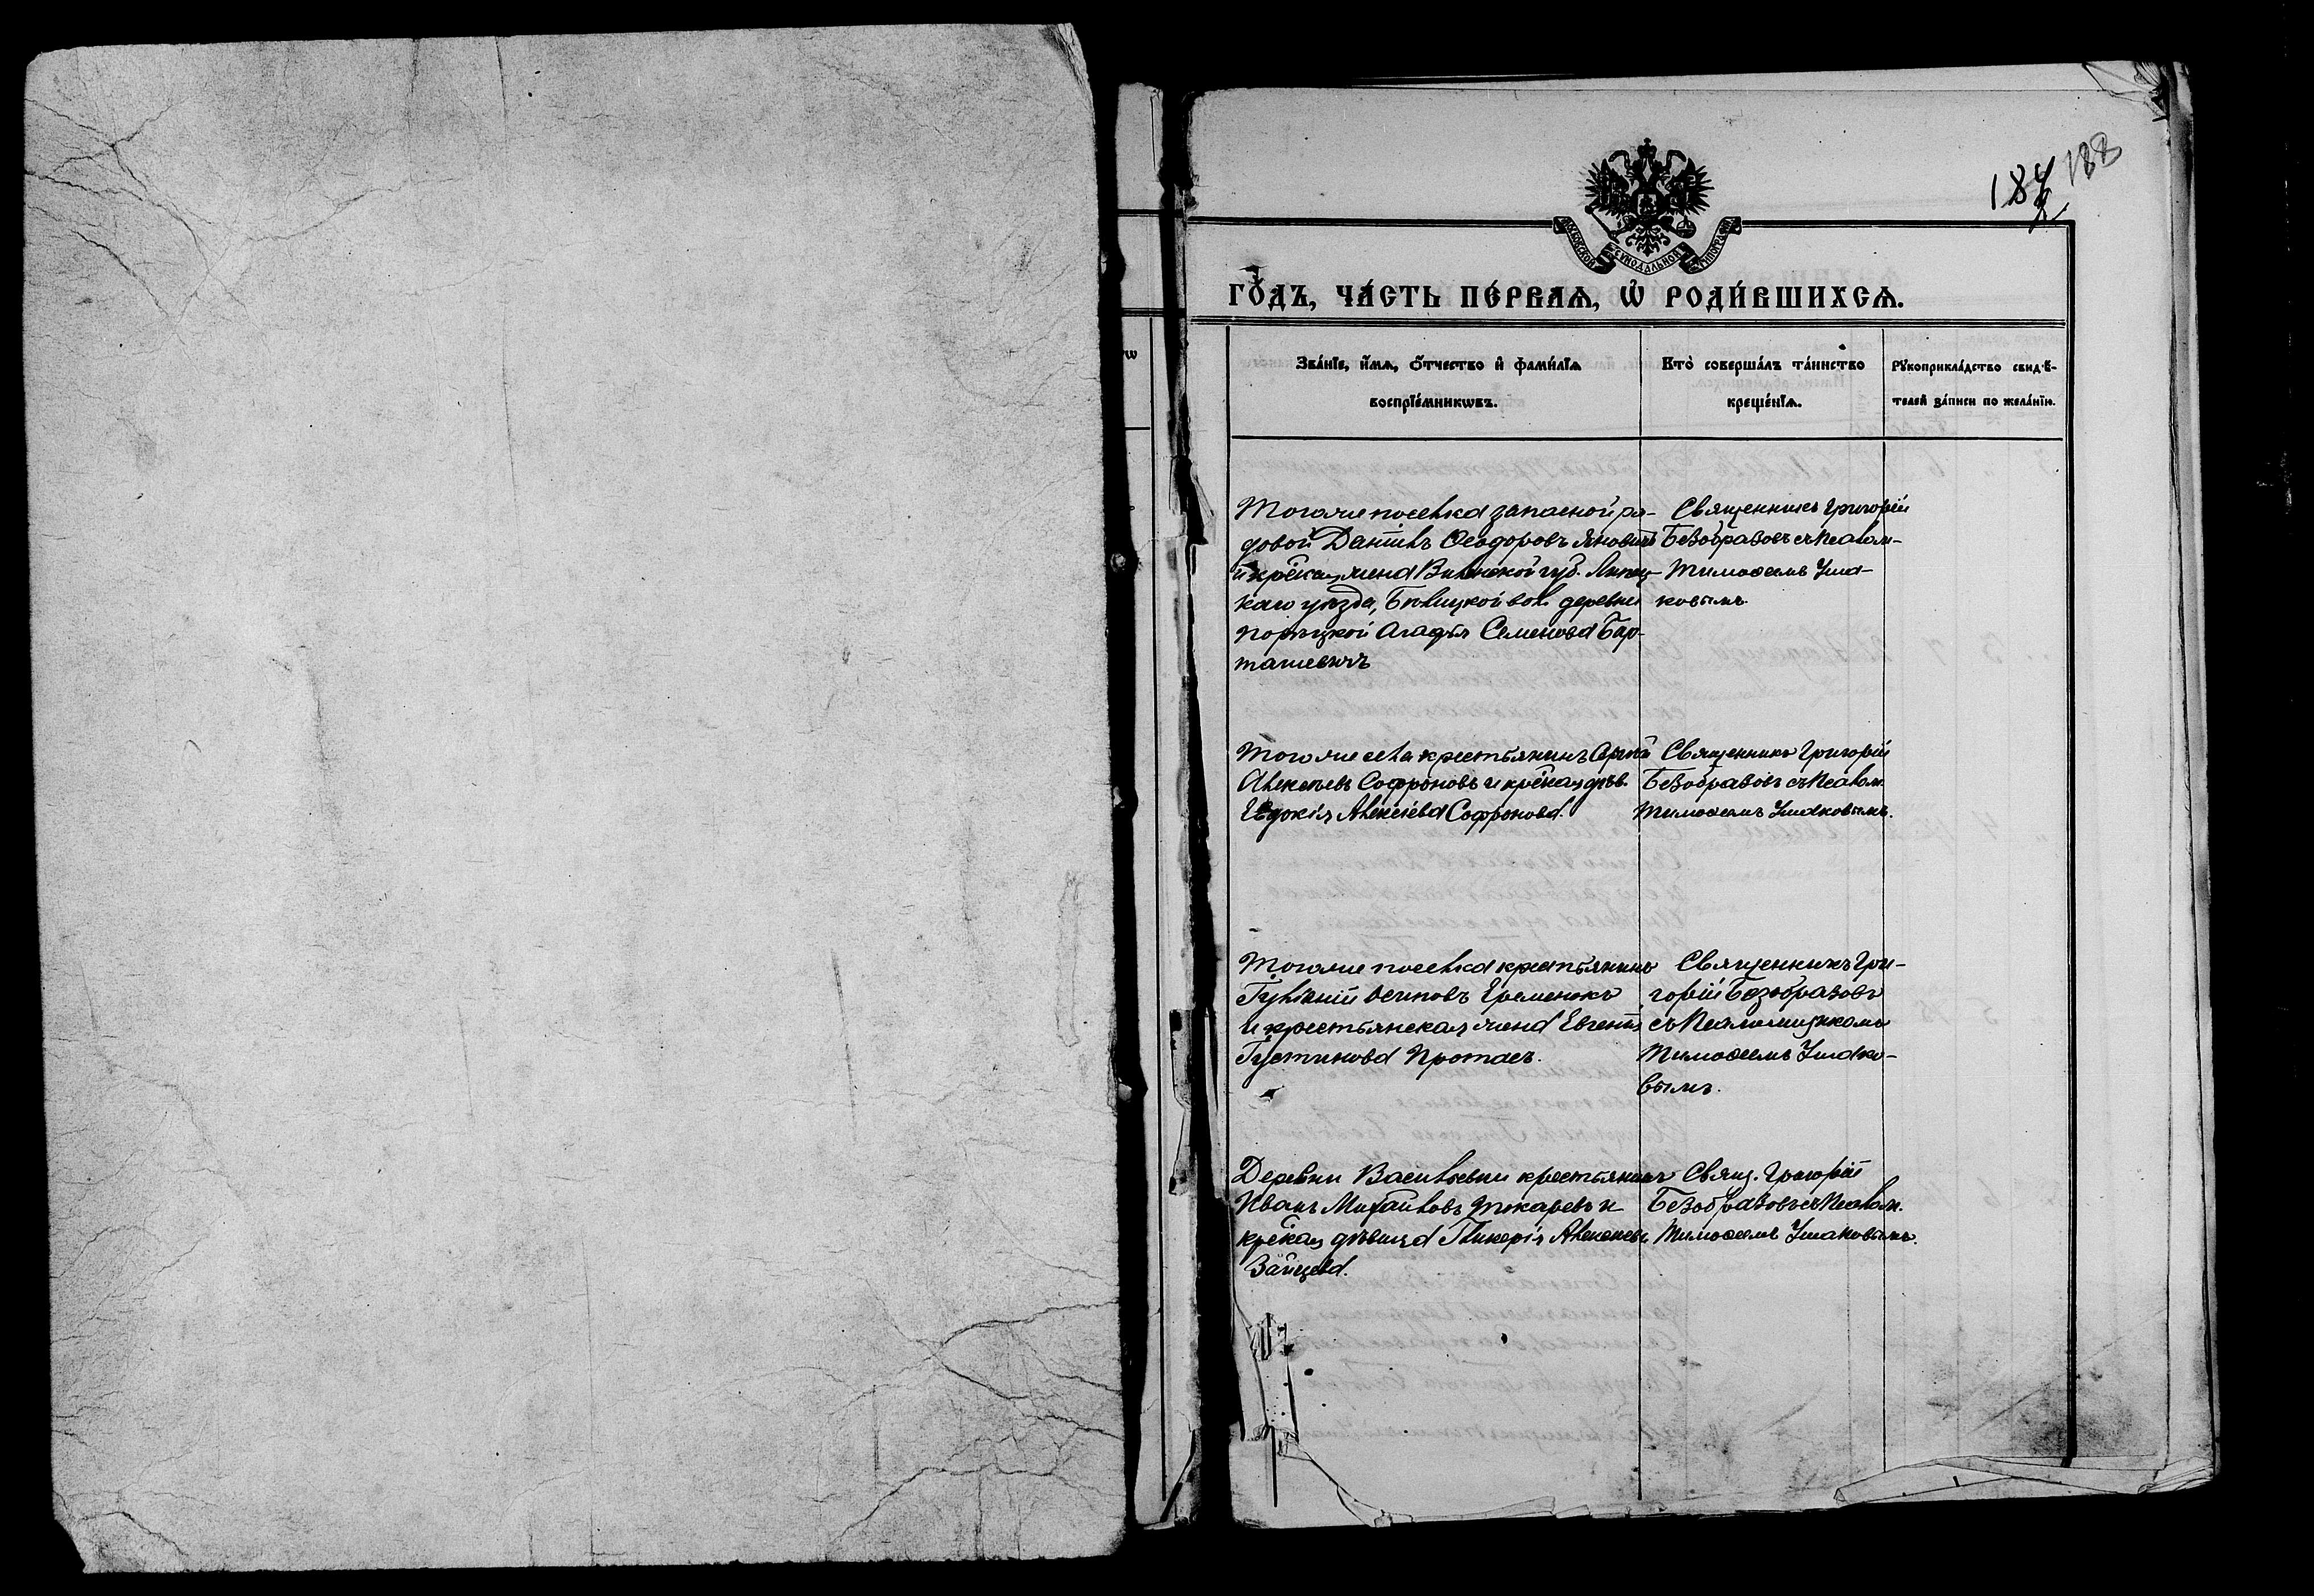 188
184
МОСКОВСКОЙ СѴНОДАЛЬНОЙ ТИПОГРАФІИ
ГО́ДЪ, ЧА́СТЬ ПЕ́РВАѦ, Ѡ҆ РОДИ́ВШИХСѦ.
Зва́нїе, и҆́мѧ, ѻ҆́тчество и҆ фами́лїѧ
воспрїе́мникѡвъ.
Кто̀ соверша́лъ та́инство
креще́нїѧ.
Рꙋкоприкла́дство свидѣ́-
телей за́писи по жела́нїю.
Тогоже поселка запасной ря-
довой Даніилъ Ѳеодоровъ Яновичъ
и кр-ская жена Виленской губ.
каго уѣзда, вол. деревни
Агафія Семенова Бар-
ташевичъ
Священникъ Григорій
Безобразовъ съ Псалом-
Тимоѳеемъ Ушa-
ковымъ.
Тогоже села крестьянинъ
Алексѣевъ Софроновъ и кр-ская дѣв.
Евдокія Алексіева Софронова.
Священникъ Григорій
Безобразовъ съ Псалом.
Тимоѳеемъ Ушаковымъ.
Тогоже поселка крестьянинъ
Іуліаній Осиповъ
и крестьянская жена Евгенія
Іустинова Протасъ.
Священникъ Гри-
горій Безобразовъ
съ Псаломщикомъ
Тимоѳеемъ Ушако-
вымъ.
Деревни Васильевки крестьянинъ
Иванъ Михаиловъ Токаревъ и
кр-ская дѣвица Гликерія Алексѣева
Зайцева.
Свящ. Григорій
Безобразовъ съ Псалом.
Тимоѳеемъ Ушаковымъ.